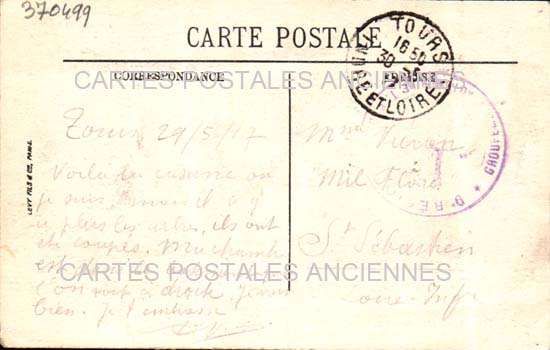 370499
CARTE POSTALE
TOURS
16 50
30
INDRE ET LOIRE
CORRESPONDANCE
ADRESSE
CARTES POSTALES ANCIENNES
GROUPE
9e RÉG
Tours 29/5/17
Voilà la caserne où
je suis, mais il n'y
a plus les arbres, ils ont
été coupés. Ma chambre
est
l'on voit à droite. Je vais
bien. Je t'embrasse
Mme Vivien
"Mil Flors"
St Sébastien
Loire-Infre
CARTES POSTALES ANCIENNES
LEVY FILS & Cie, PARIS